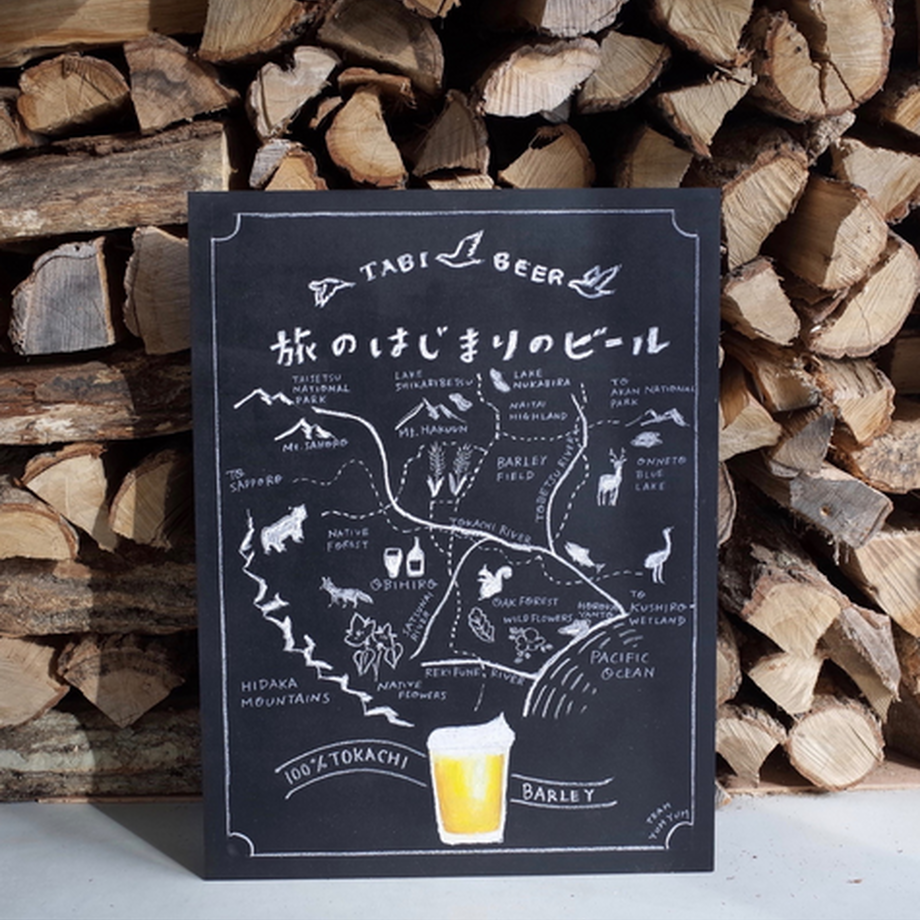 TABI BEER
旅のはじまりのビール
TAISETSU
NATIONAL
PARK
LAKE
SHIKARIBETSU
LAKE
NUKABIRA
TO
AKAN NATIONAL
PARK
NAITAI
HIGHLAND
MT. HAKUUN
BARLEY
FIELD
ONNETO
BLUE
LAKE
TO
SAPPORO
NATIVE
FOREST
TOKACHI RIVER
OBIHIRO
OAK FOREST
WILD FLOWERS
TO
KUSHIRO
WETLAND
SATSUNAI
RIVER
PACIFIC
OCEAN
REKIFUNE RIVER
NATIVE
FLOWERS
HIDAKA
MOUNTAINS
100% TOKACHI
BARLEY
TEAM
YUM YUM